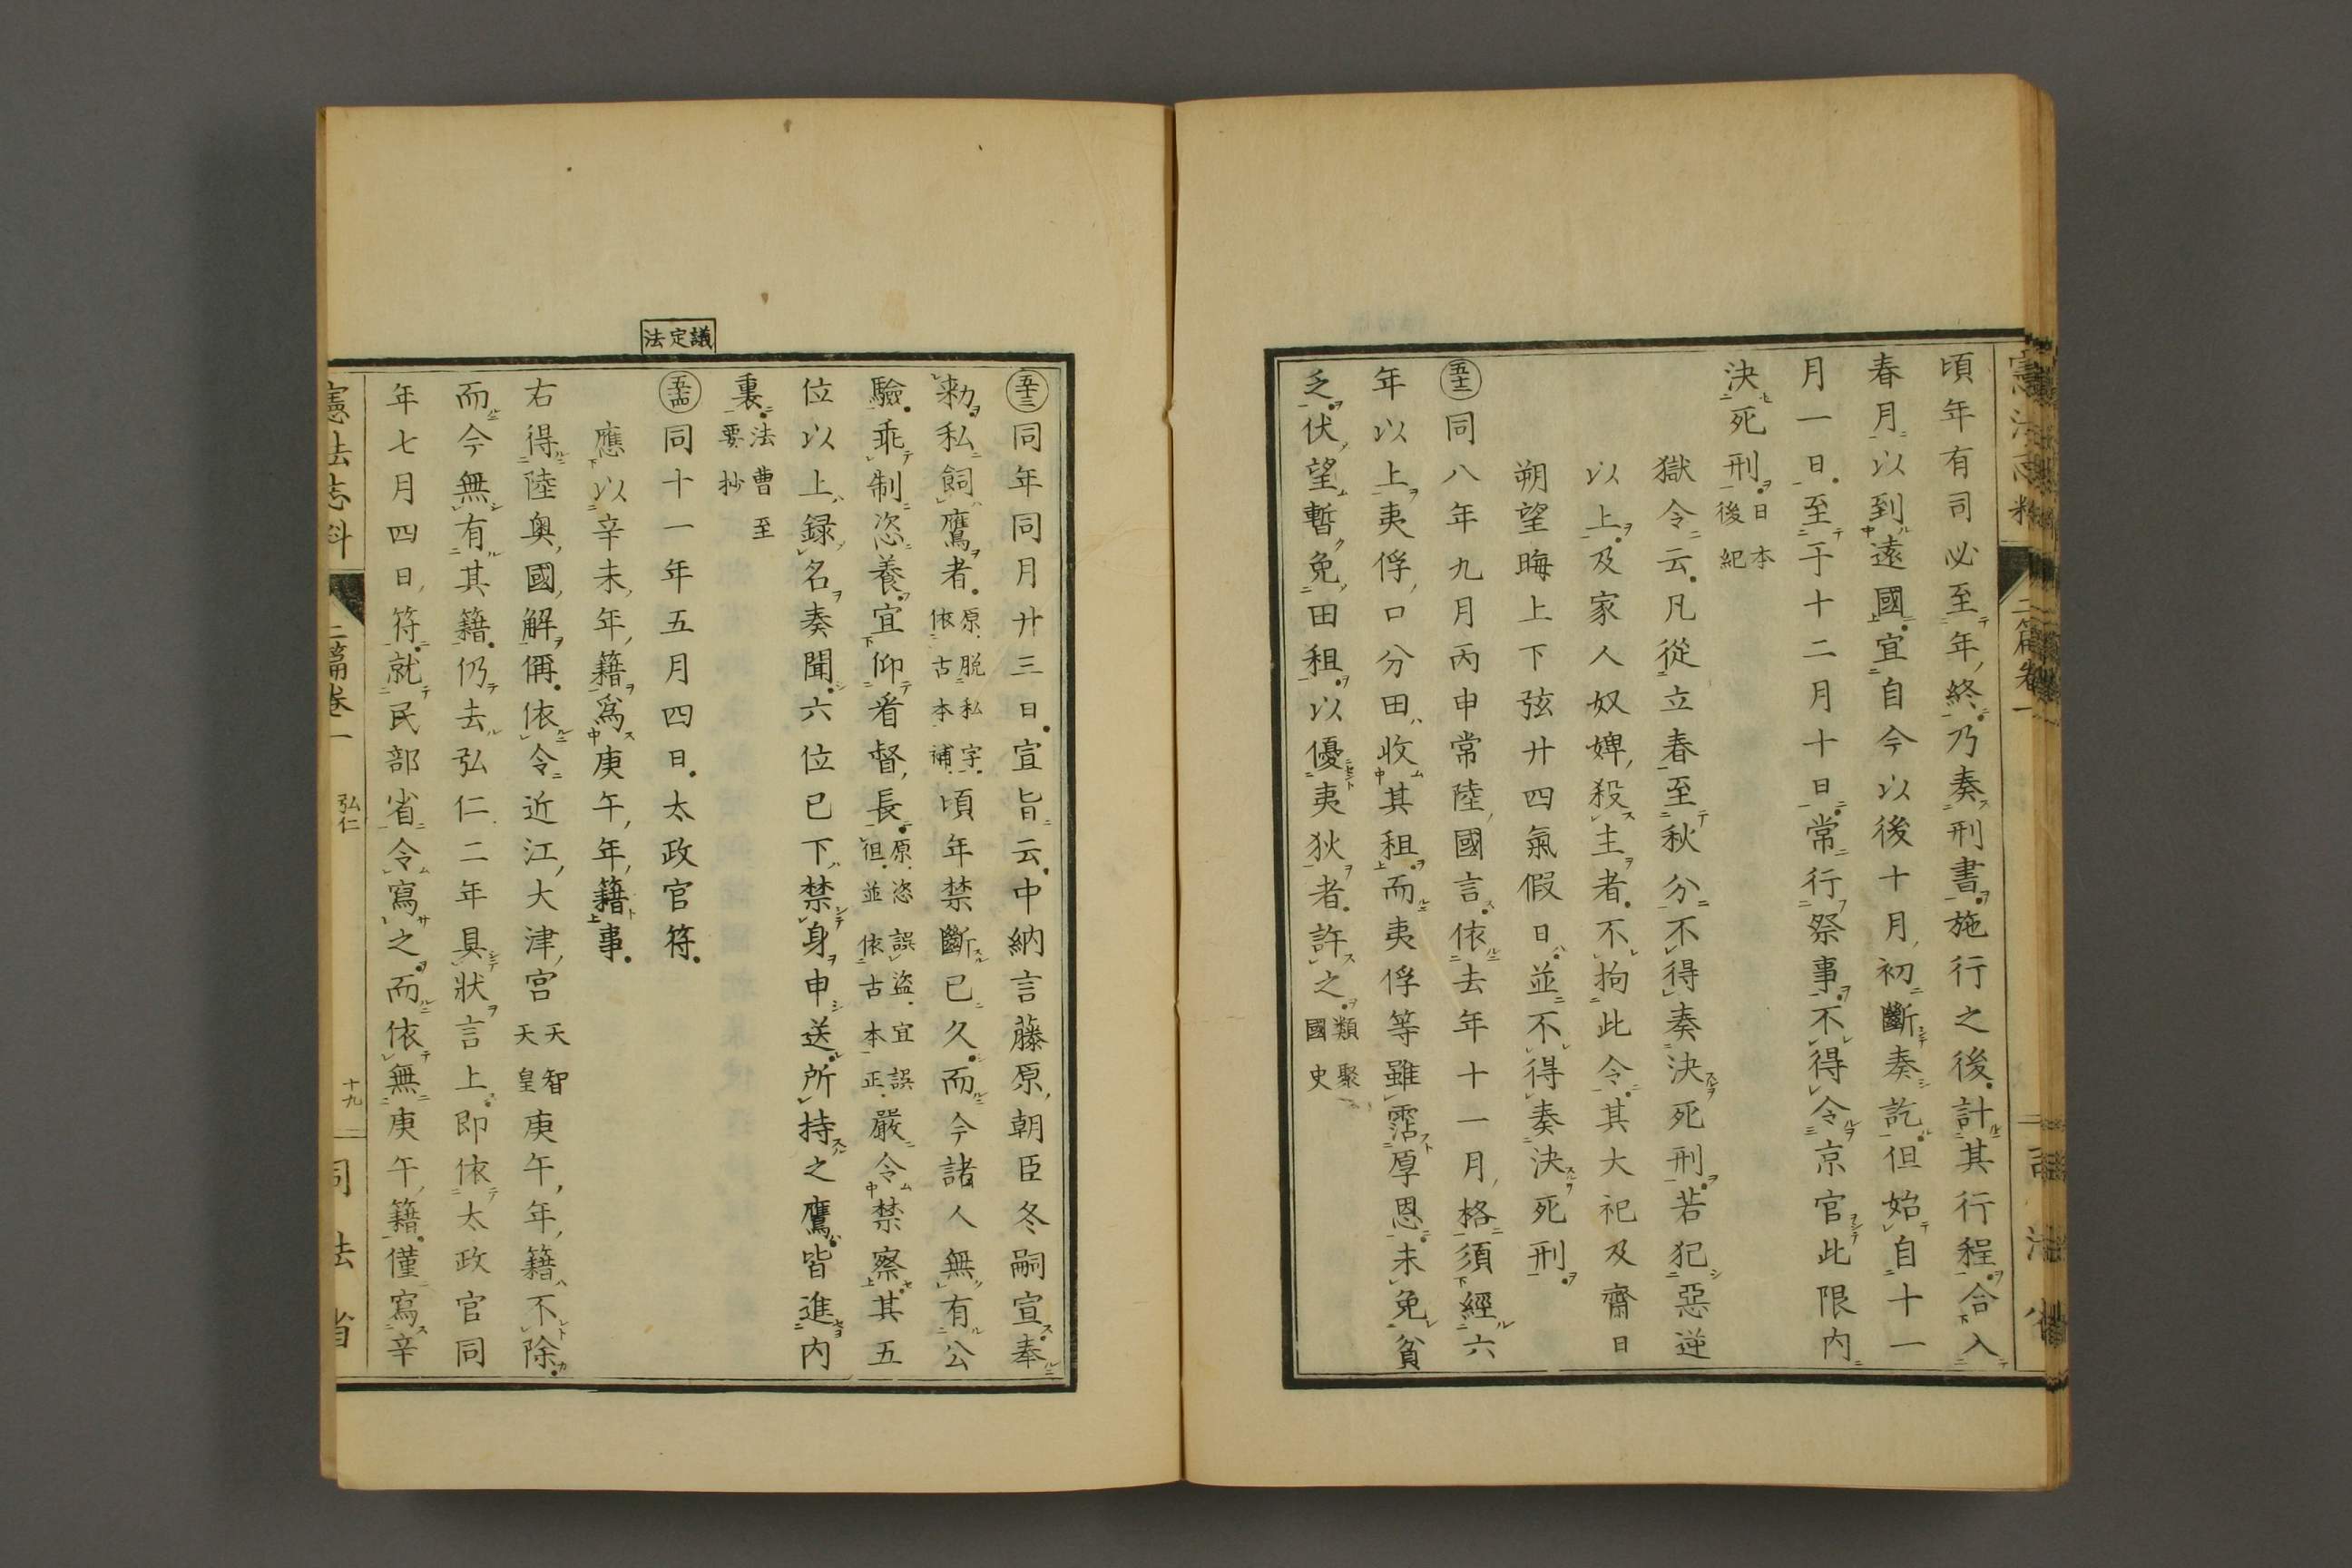 頃年有司必至年終乃奏刑書施行之後計其行程合入
春月以到遠國宜自今以後十月初斷奏訖但始自十一
月一日至于十二月十日常行祭事不得令京官此限內
決死刑日本後紀
獄令云凡從立春至秋分不得奏決死刑若犯惡逆
以上及家人奴婢殺主者不拘此令其大祀及齋日
朔望晦上下弦廿四氣假日並不得奏決死刑
五十二同八年九月丙申常陸國言依去年十一月格須經六
年以上夷俘口分田收其租而夷俘等雖霑厚恩未免貧
乏伏望暫免田租以優夷狄者許之類聚國史
五十三同年同月廿三日宣旨云中納言藤原朝臣冬嗣宣奉
勅私飼鷹者原脱私字依古本補頃年禁斷已久而今諸人無有公
驗乖制恣養宜仰看督長原恣誤盜宜誤但並依古本正嚴令禁察其五
位以上錄名奏聞六位已下禁身申送所持之鷹皆進內
裏法曹至要抄
議定法
五十四同十一年五月四日太政官符
應以辛未年籍爲庚午年籍事
右得陸奥國解偁依令近江大津宮天智天皇庚午年籍不除
而今無有其籍仍去弘仁二年具狀言上即依太政官同
年七月四日符就民部省令寫之而依無庚午籍僅寫辛
憲法志料 二篇卷一 弘仁 十九 司法省